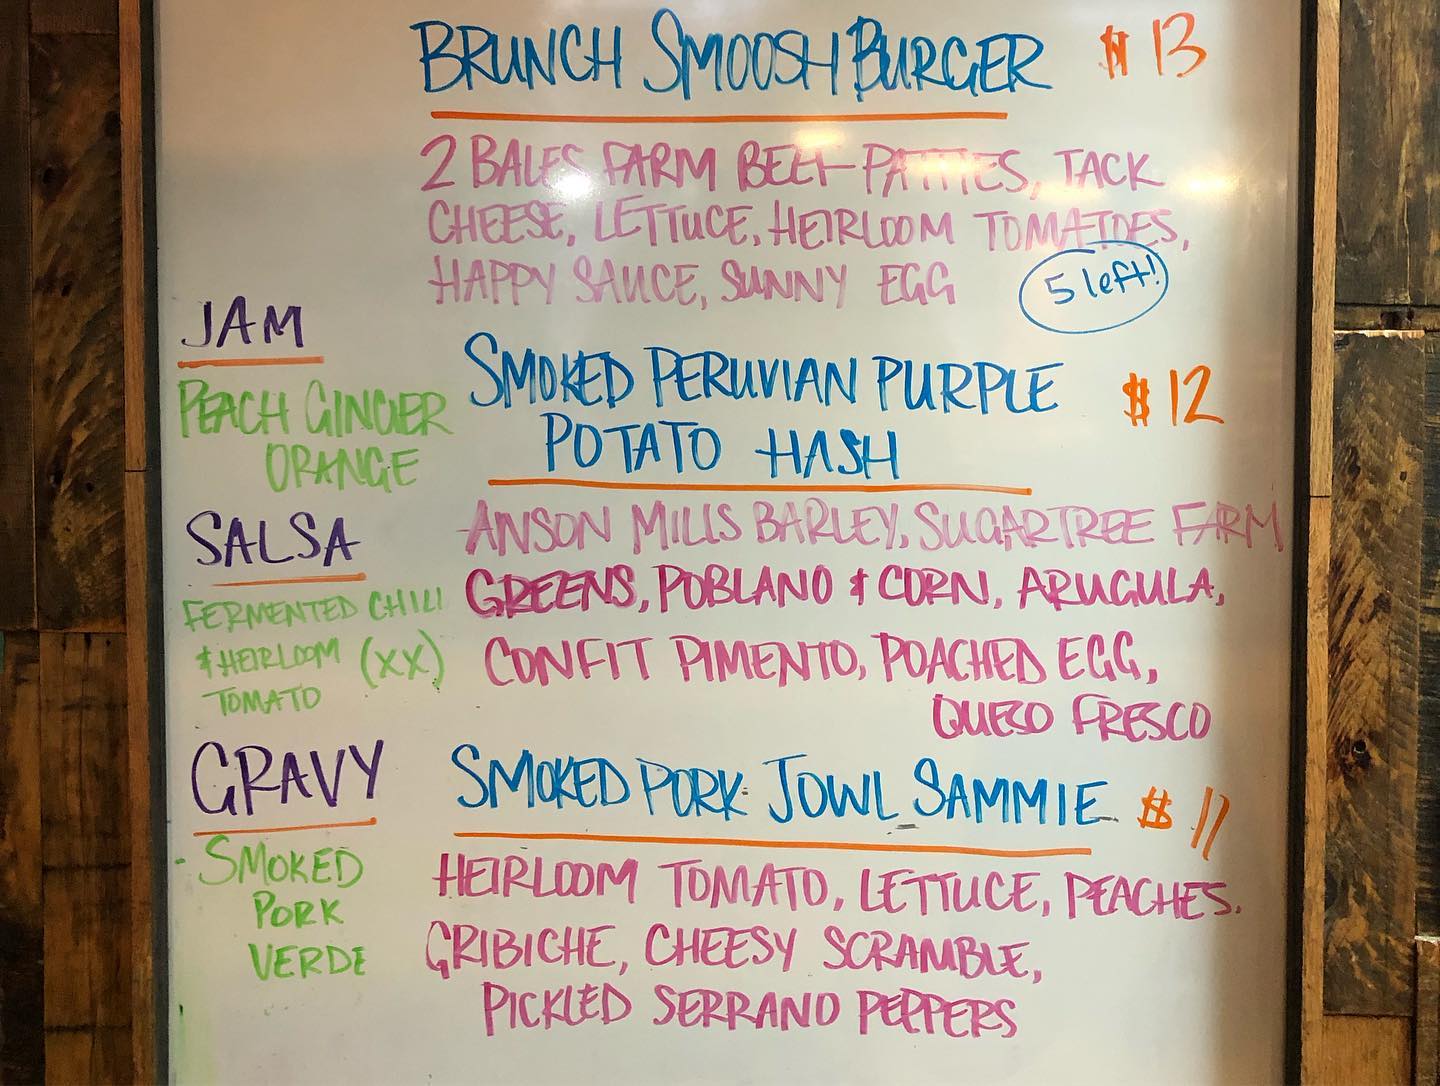 BRUNCH SMOOSH BURGER $13
2 BALES FARM BEEF PATTIES, TACK
CHEESE, LETTUCE, HEIRLOOM TOMATOES,
HAPPY SAUCE, SUNNY EGG
5 left!
SMOKED PERUVIAN PURPLE
POTATO HASH
$12
ANSON MILLS BARLEY, SUGARTREE FARM
GREENS, POBLANO & CORN, ARUGULA,
CONFIT PIMENTO, POACHED EGG,
QUESO FRESCO
SMOKED PORK JOWL SAMMIE $11
HEIRLOOM TOMATO, LETTUCE, PEACHES,
GRIBICHE, CHEESY SCRAMBLE,
PICKLED SERRANO PEPPERS
JAM
PEACH GINGER
ORANGE
SALSA
FERMENTED CHILI
& HEIRLOOM (XX)
TOMATO
GRAVY
SMOKED
PORK
VERDE